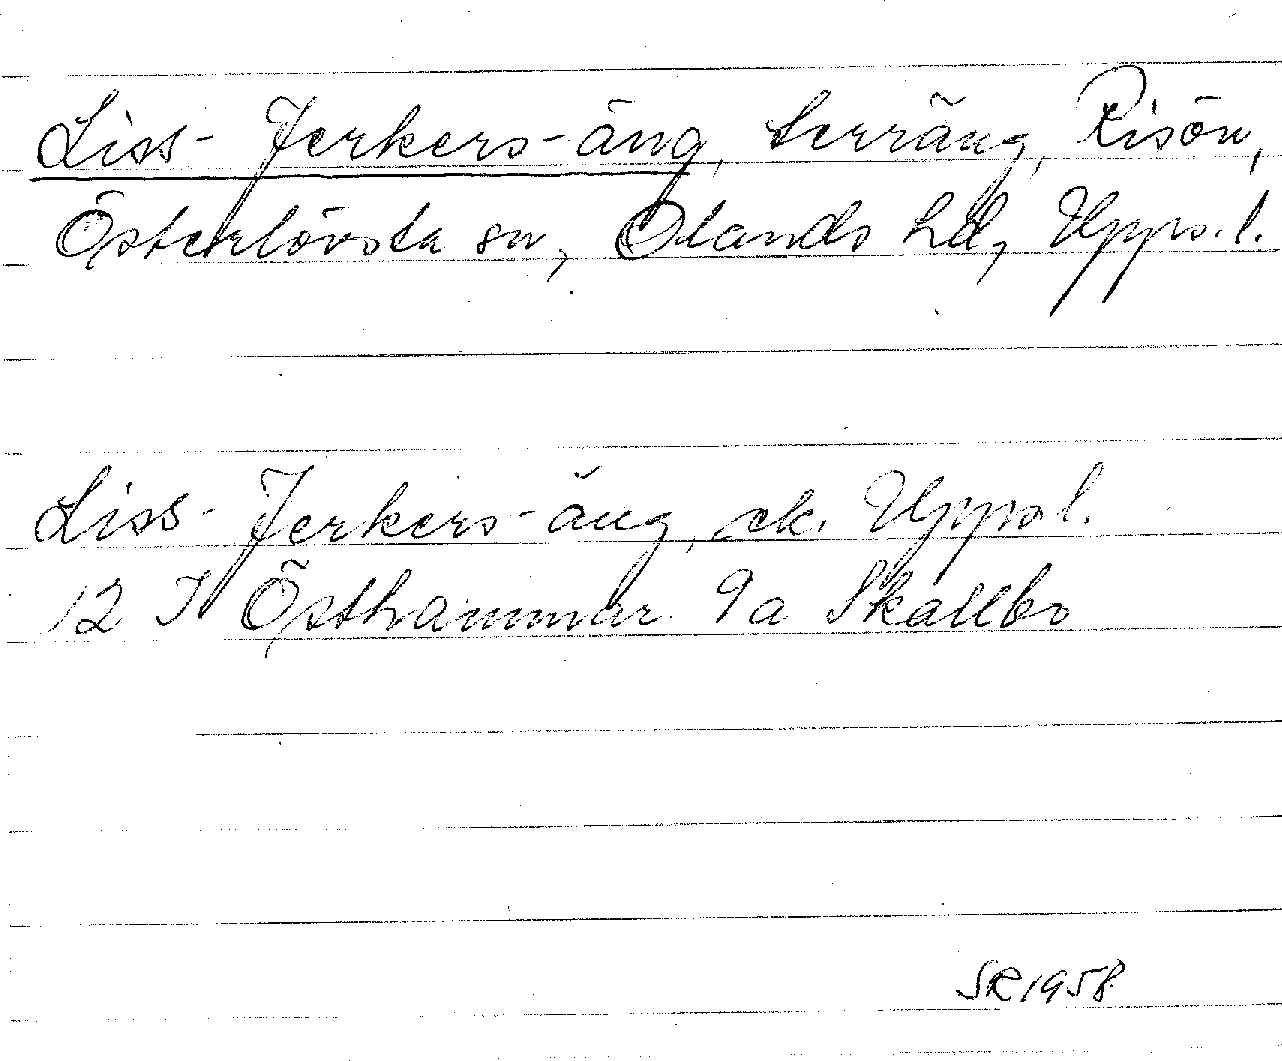 Liss-Jerkers-äng, terräng, Risön,
Österlövsta sn, Olands hd, Upps. l.
Liss-Jerkers-äng, ek. Upps l.
12 I Östhammar 9a Skallbo
SR 1958